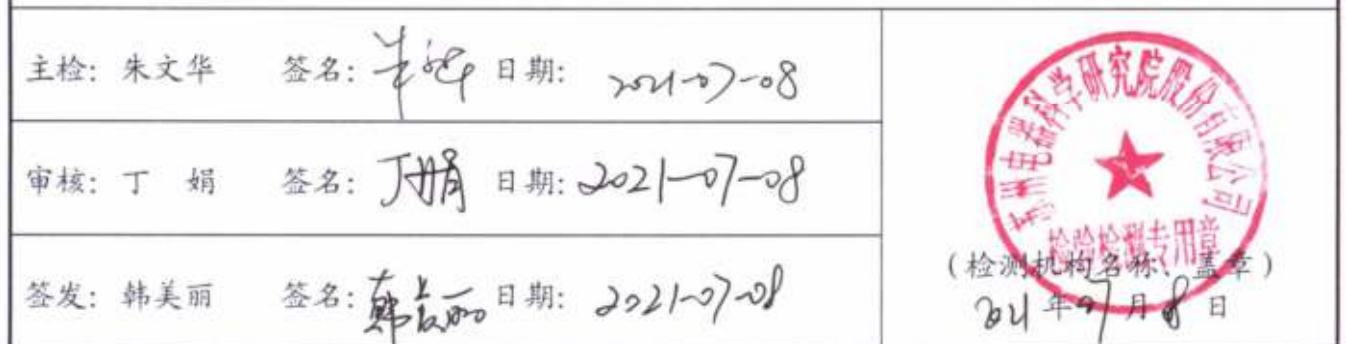 主检: 朱文华 签名: 朱文华 日期: 2021-07-08
审核: 丁 娟 签名: 丁娟 日期: 2021-07-08
签发: 韩美丽 签名: 韩美丽 日期: 2021-07-08
苏州电器科学研究院股份有限公司
检验检测专用章
(检测机构名称、盖章)
2021年07月8日